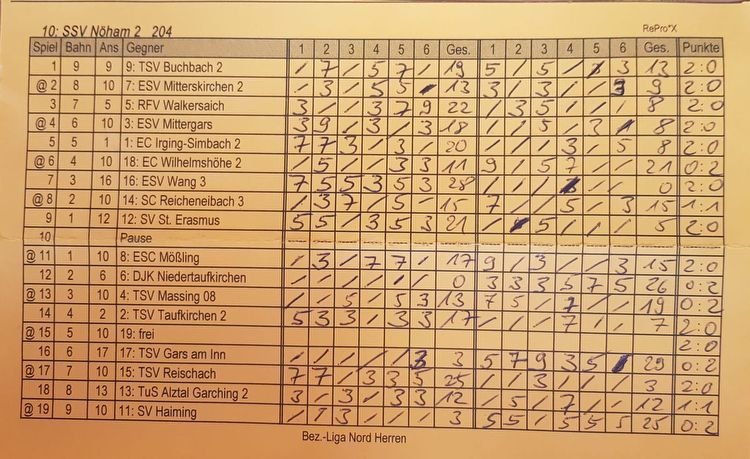 10: SSV Nöham 2 204 RePro*X
Spiel Bahn Ans Gegner 1 2 3 4 5 6 Ges. 1 2 3 4 5 6 Ges. Punkte
1 9 9 9: TSV Buchbach 2 / 7 / 5 7 / 19 5 / 5 / / 3 13 2:0
@ 2 8 10 7: ESV Mitterskirchen 2 / 3 / 5 5 / 13 3 / 3 / / 3 9 2:0
3 7 5 5: RFV Walkersaich 3 / / 3 7 9 22 / 3 5 / / / 8 2:0
@ 4 6 10 3: ESV Mittergars 3 9 / 3 / 3 18 / / 5 / 3 / 8 2:0
5 5 1 1: EC Irging-Simbach 2 7 7 3 / 3 / 20 / / / 3 / 5 8 2:0
@ 6 4 10 18: EC Wilhelmshöhe 2 / 5 / / 3 3 11 9 / 5 7 / / 21 0:2
7 3 16 16: ESV Wang 3 7 5 5 3 5 3 28 / / / / / / 0 2:0
@ 8 2 10 14: SC Reicheneibach 3 / 3 7 / 5 / 15 7 / / 5 / 3 15 1:1
9 1 12 12: SV St. Erasmus 5 5 / 3 5 3 21 / / 5 / / / 5 2:0
10 Pause
@ 11 1 10 8: ESC Mößling / 3 / 7 7 / 17 9 / 3 / / 3 15 2:0
12 2 6 6: DJK Niedertaufkirchen / / / / / / 0 3 3 3 5 7 5 26 0:2
@ 13 3 10 4: TSV Massing 08 / / 5 / 5 3 13 7 5 / 7 / / 19 0:2
14 4 2 2: TSV Taufkirchen 2 5 3 3 / 3 3 17 / / / 7 / / 7 2:0
@ 15 5 10 19: frei 2:0
16 6 17 17: TSV Gars am Inn / / / / / 3 3 5 7 9 3 5 / 29 0:2
@ 17 7 10 15: TSV Reischach 7 7 / 3 3 5 25 / / 3 / / / 3 2:0
18 8 13 13: TuS Alztal Garching 2 3 / 3 / 3 3 12 / 5 / 7 / / 12 1:1
@ 19 9 10 11: SV Haiming / / 3 / / / 3 5 5 / 5 5 5 25 0:2
Bez.-Liga Nord Herren